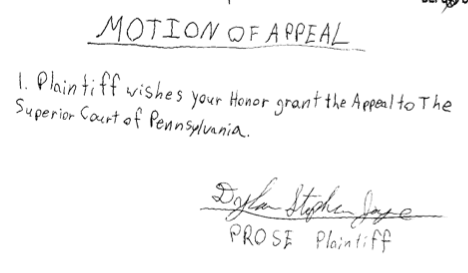 MOTION OF APPEAL
1. Plaintiff wishes your Honor grant the Appeal to The
Superior Court of Pennsylvania.
Dylan Stephen Jaye
PROSE Plaintiff